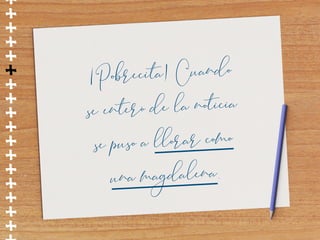 ¡Pobrecita! Cuando
se entero de la noticia
se puso a llorar como
una magdalena